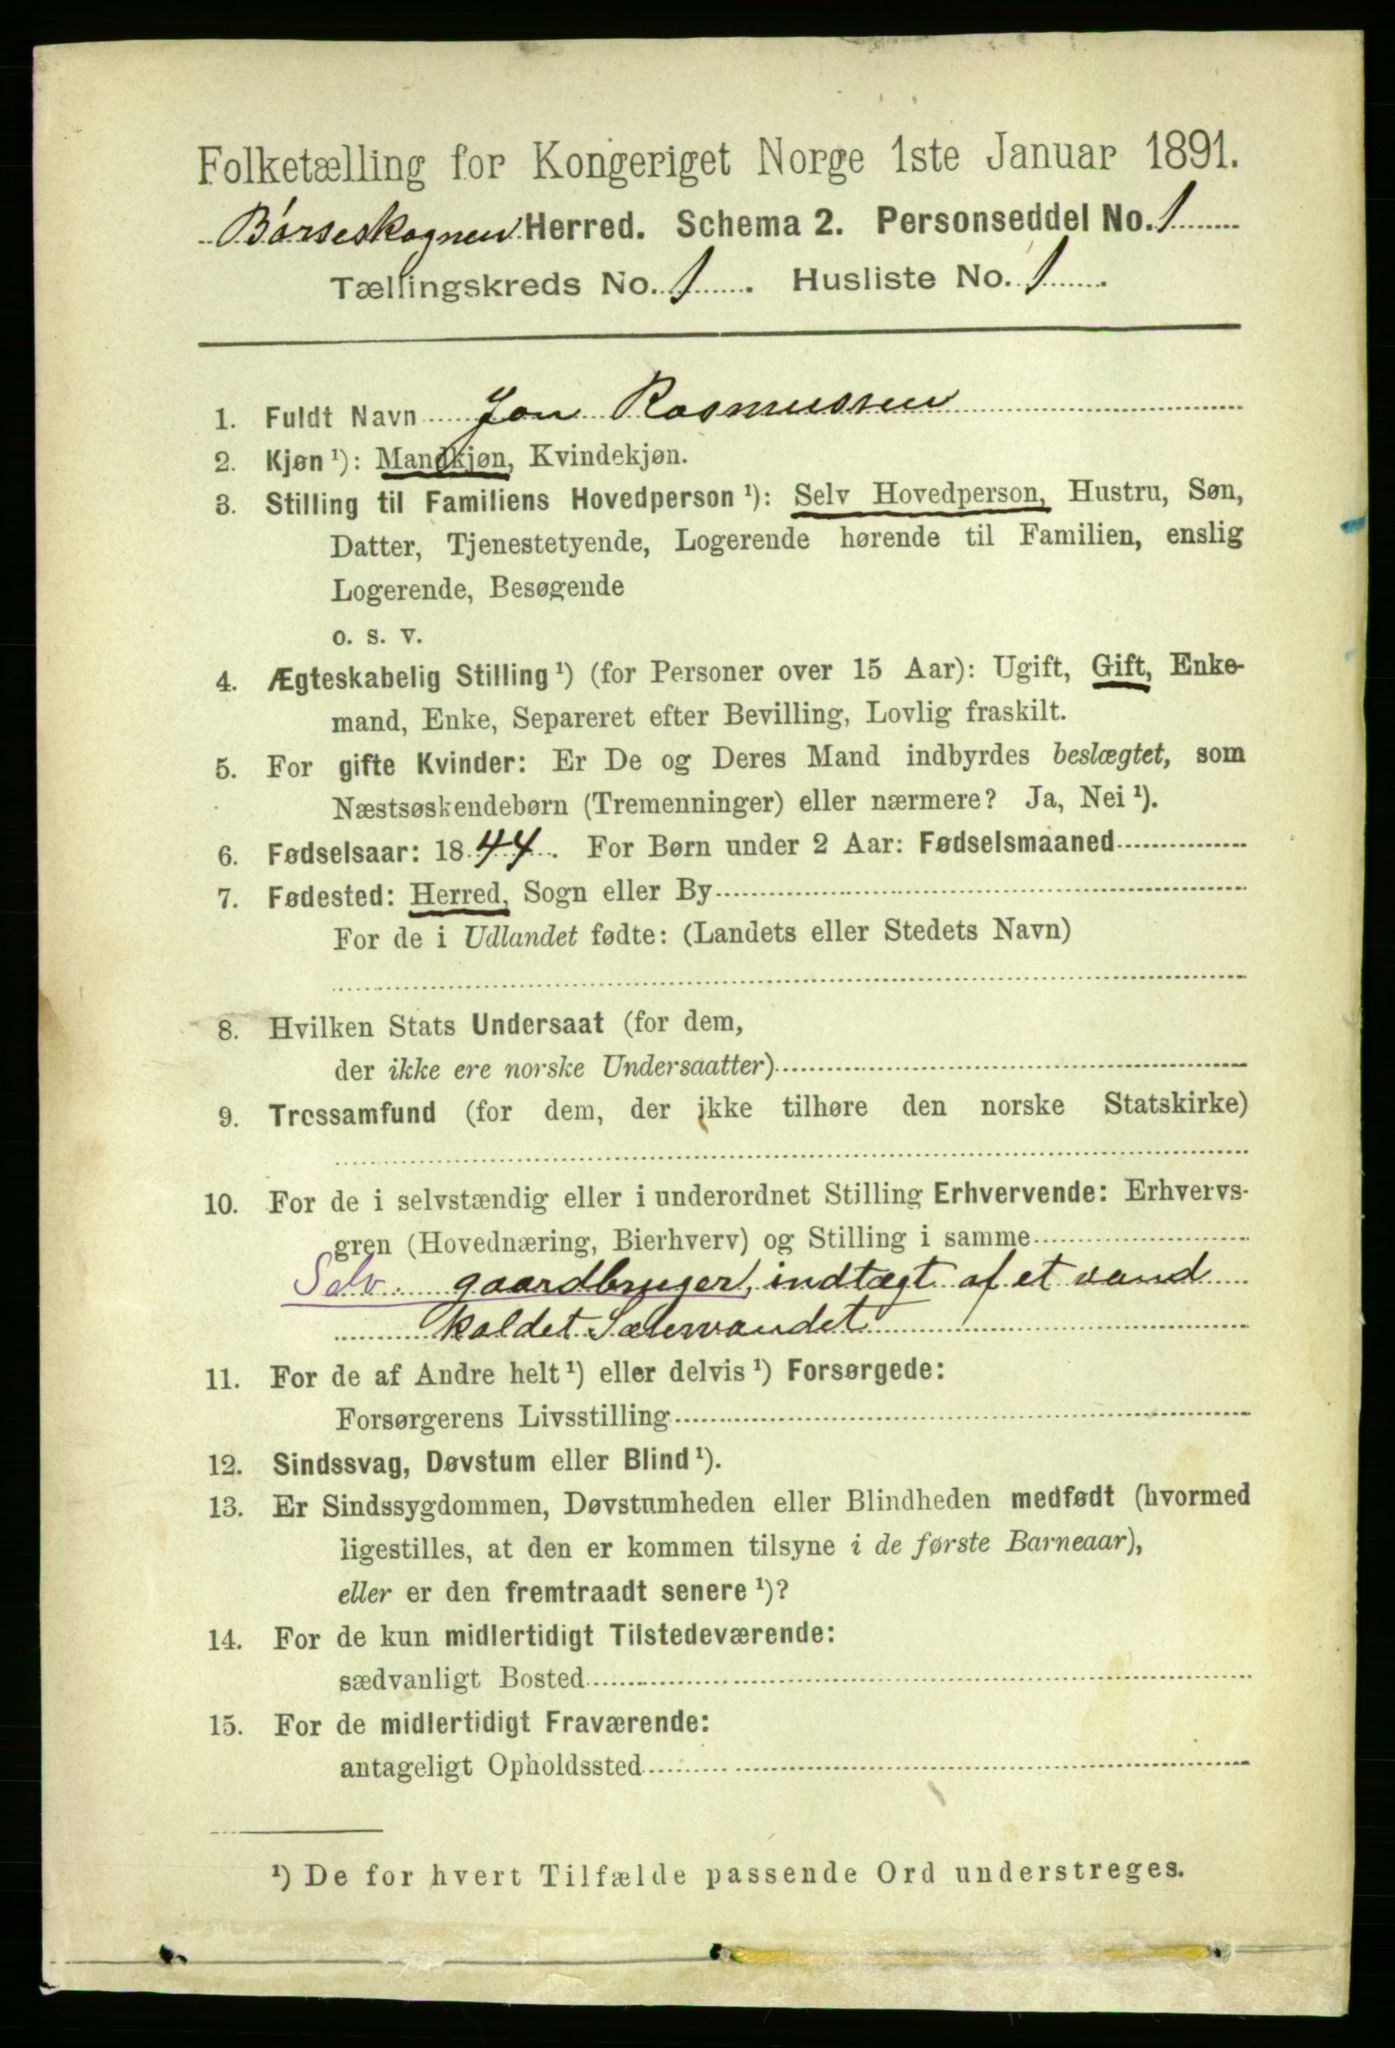 Folketælling for Kongeriget Norge 1ste Januar 1891.
Børseskognen Herred. Schema 2. Personseddel No. 1
Tællingskreds No. 1. Husliste No. 1.
1. Fuldt Navn Jon Rasmussen
2. Kjøn ¹): Mandkjøn, Kvindekjøn.
3. Stilling til Familiens Hovedperson ¹): Selv Hovedperson, Hustru, Søn,
Datter, Tjenestetyende, Logerende hørende til Familien, enslig
Logerende, Besøgende
o. s. v.
4. Ægteskabelig Stilling ¹) (for Personer over 15 Aar): Ugift, Gift, Enke-
mand, Enke, Separeret efter Bevilling, Lovlig fraskilt.
5. For gifte Kvinder: Er De og Deres Mand indbyrdes beslægtet, som
Næstsøskendebørn (Tremenninger) eller nærmere? Ja, Nei ¹).
6. Fødselsaar: 1844. For Børn under 2 Aar: Fødselsmaaned
7. Fødested: Herred, Sogn eller By
For de i Udlandet fødte: (Landets eller Stedets Navn)
8. Hvilken Stats Undersaat (for dem,
der ikke ere norske Undersaatter)
9. Trossamfund (for dem, der ikke tilhøre den norske Statskirke)
10. For de i selvstændig eller i underordnet Stilling Erhvervende: Erhvervs-
gren (Hovednæring, Bierhverv) og Stilling i samme
Selv. gaardbruger, indtægt af et vand
kaldet
11. For de af Andre helt ¹) eller delvis ¹) Forsørgede:
Forsørgerens Livsstilling
12. Sindssvag, Døvstum eller Blind ¹).
13. Er Sindssygdommen, Døvstumheden eller Blindheden medfødt (hvormed
ligestilles, at den er kommen tilsyne i de første Barneaar),
eller er den fremtraadt senere ¹)?
14. For de kun midlertidigt Tilstedeværende:
sædvanligt Bosted
15. For de midlertidigt Fraværende:
antageligt Opholdssted
¹) De for hvert Tilfælde passende Ord understreges.